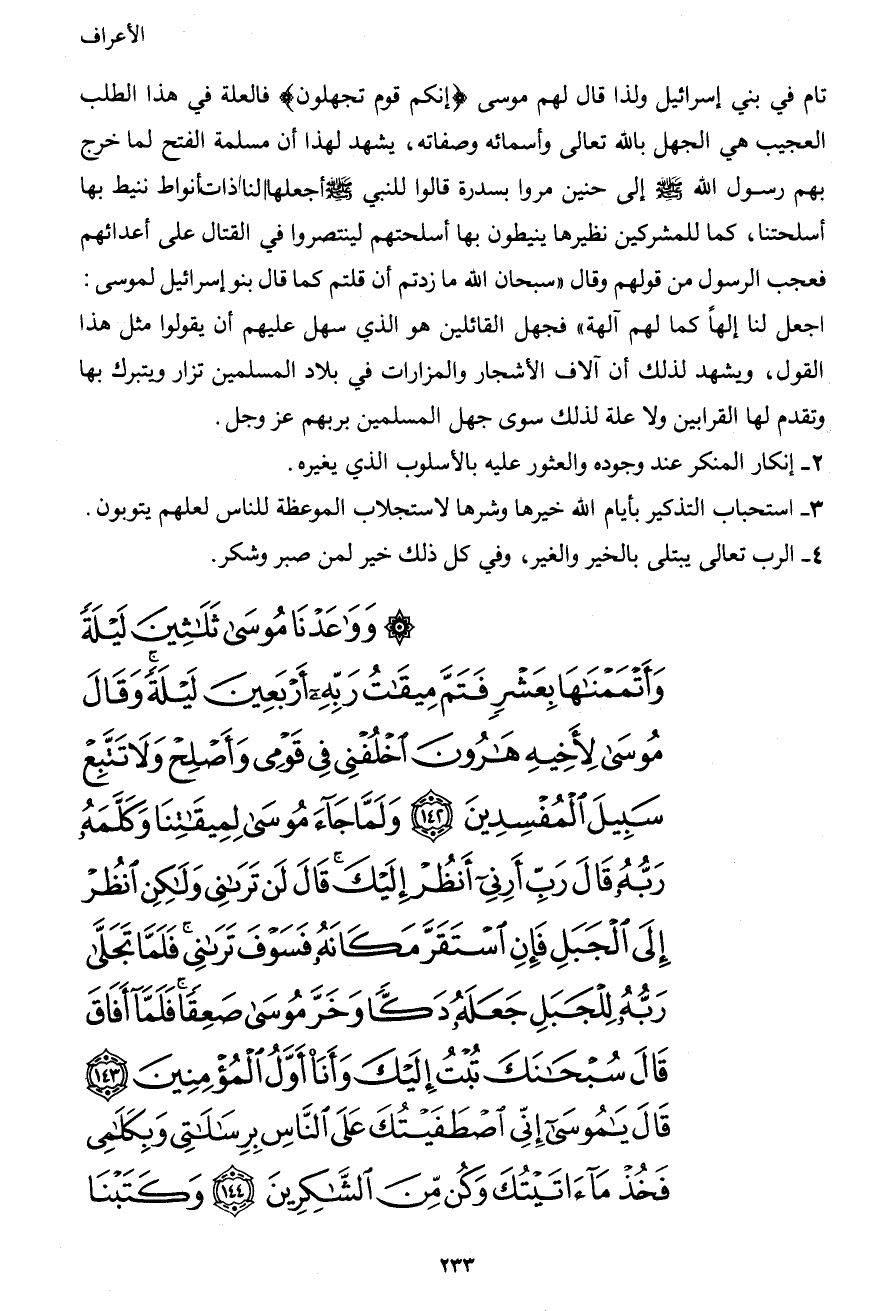 الأعراف
تام في بني إسرائيل ولذا قال لهم موسى ﴿إنكم قوم تجهلون﴾ فالعلة في هذا الطلب
العجيب هي الجهل بالله تعالى وأسمائه وصفاته، يشهد لهذا أن مسلمة الفتح لما خرج
بهم رسول الله ﷺ إلى حنين مروا بسدرة قالوا للنبي ﷺ أجعلها لنا ذات أنواط ننيط بها
أسلحتنا، كما للمشركين نظيرها ينيطون بها أسلحتهم لينتصروا في القتال على أعدائهم
فعجب الرسول من قولهم وقال «سبحان الله ما زدتم أن قلتم كما قال بنو إسرائيل لموسى :
اجعل لنا إلهاً كما لهم آلهة» فجهل القائلين هو الذي سهل عليهم أن يقولوا مثل هذا
القول، ويشهد لذلك أن آلاف الأشجار والمزارات في بلاد المسلمين تزار ويتبرك بها
وتقدم لها القرابين ولا علة لذلك سوى جهل المسلمين بربهم عز وجل.
٢ـ إنكار المنكر عند وجوده والعثور عليه بالأسلوب الذي يغيره.
٣ـ استحباب التذكير بأيام الله خيرها وشرها لاستجلاب الموعظة للناس لعلهم يتوبون.
٤ـ الرب تعالى يبتلى بالخير والغير، وفي كل ذلك خير لمن صبر وشكر.
۞ وَوَٰعَدْنَا مُوسَىٰ ثَلَٰثِينَ لَيْلَةً
وَأَتْمَمْنَٰهَا بِعَشْرٍ فَتَمَّ مِيقَٰتُ رَبِّهِۦٓ أَرْبَعِينَ لَيْلَةً ۚ وَقَالَ
مُوسَىٰ لِأَخِيهِ هَٰرُونَ ٱخْلُفْنِى فِى قَوْمِى وَأَصْلِحْ وَلَا تَتَّبِعْ
سَبِيلَ ٱلْمُفْسِدِينَ ﴿١٤٢﴾ وَلَمَّا جَآءَ مُوسَىٰ لِمِيقَٰتِنَا وَكَلَّمَهُۥ
رَبُّهُۥ قَالَ رَبِّ أَرِنِىٓ أَنظُرْ إِلَيْكَ ۚ قَالَ لَن تَرَىٰنِى وَلَٰكِنِ ٱنظُرْ
إِلَى ٱلْجَبَلِ فَإِنِ ٱسْتَقَرَّ مَكَانَهُۥ فَسَوْفَ تَرَىٰنِى ۚ فَلَمَّا تَجَلَّىٰ
رَبُّهُۥ لِلْجَبَلِ جَعَلَهُۥ دَكًّا وَخَرَّ مُوسَىٰ صَعِقًا ۚ فَلَمَّآ أَفَاقَ
قَالَ سُبْحَٰنَكَ تُبْتُ إِلَيْكَ وَأَنَا۠ أَوَّلُ ٱلْمُؤْمِنِينَ ﴿١٤٣﴾
قَالَ يَٰمُوسَىٰٓ إِنِّى ٱصْطَفَيْتُكَ عَلَى ٱلنَّاسِ بِرِسَٰلَٰتِى وَبِكَلَٰمِى
فَخُذْ مَآ ءَاتَيْتُكَ وَكُن مِّنَ ٱلشَّٰكِرِينَ ﴿١٤٤﴾ وَكَتَبْنَا
٢٣٣